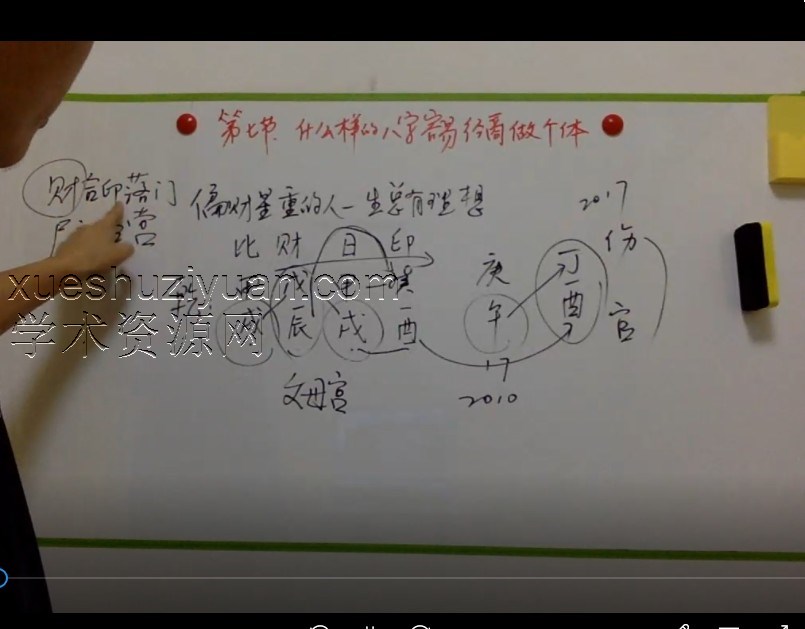 第七节 什么样的八字容易经商做个体
财官印落门 偏财星重的人一生总有理想 2017
营
比 财 日 印 伤
庚 丁
戌 辰 戌 酉 午 酉 官
17
父母宫 2010
xueshuziyuan.com
学术资源网